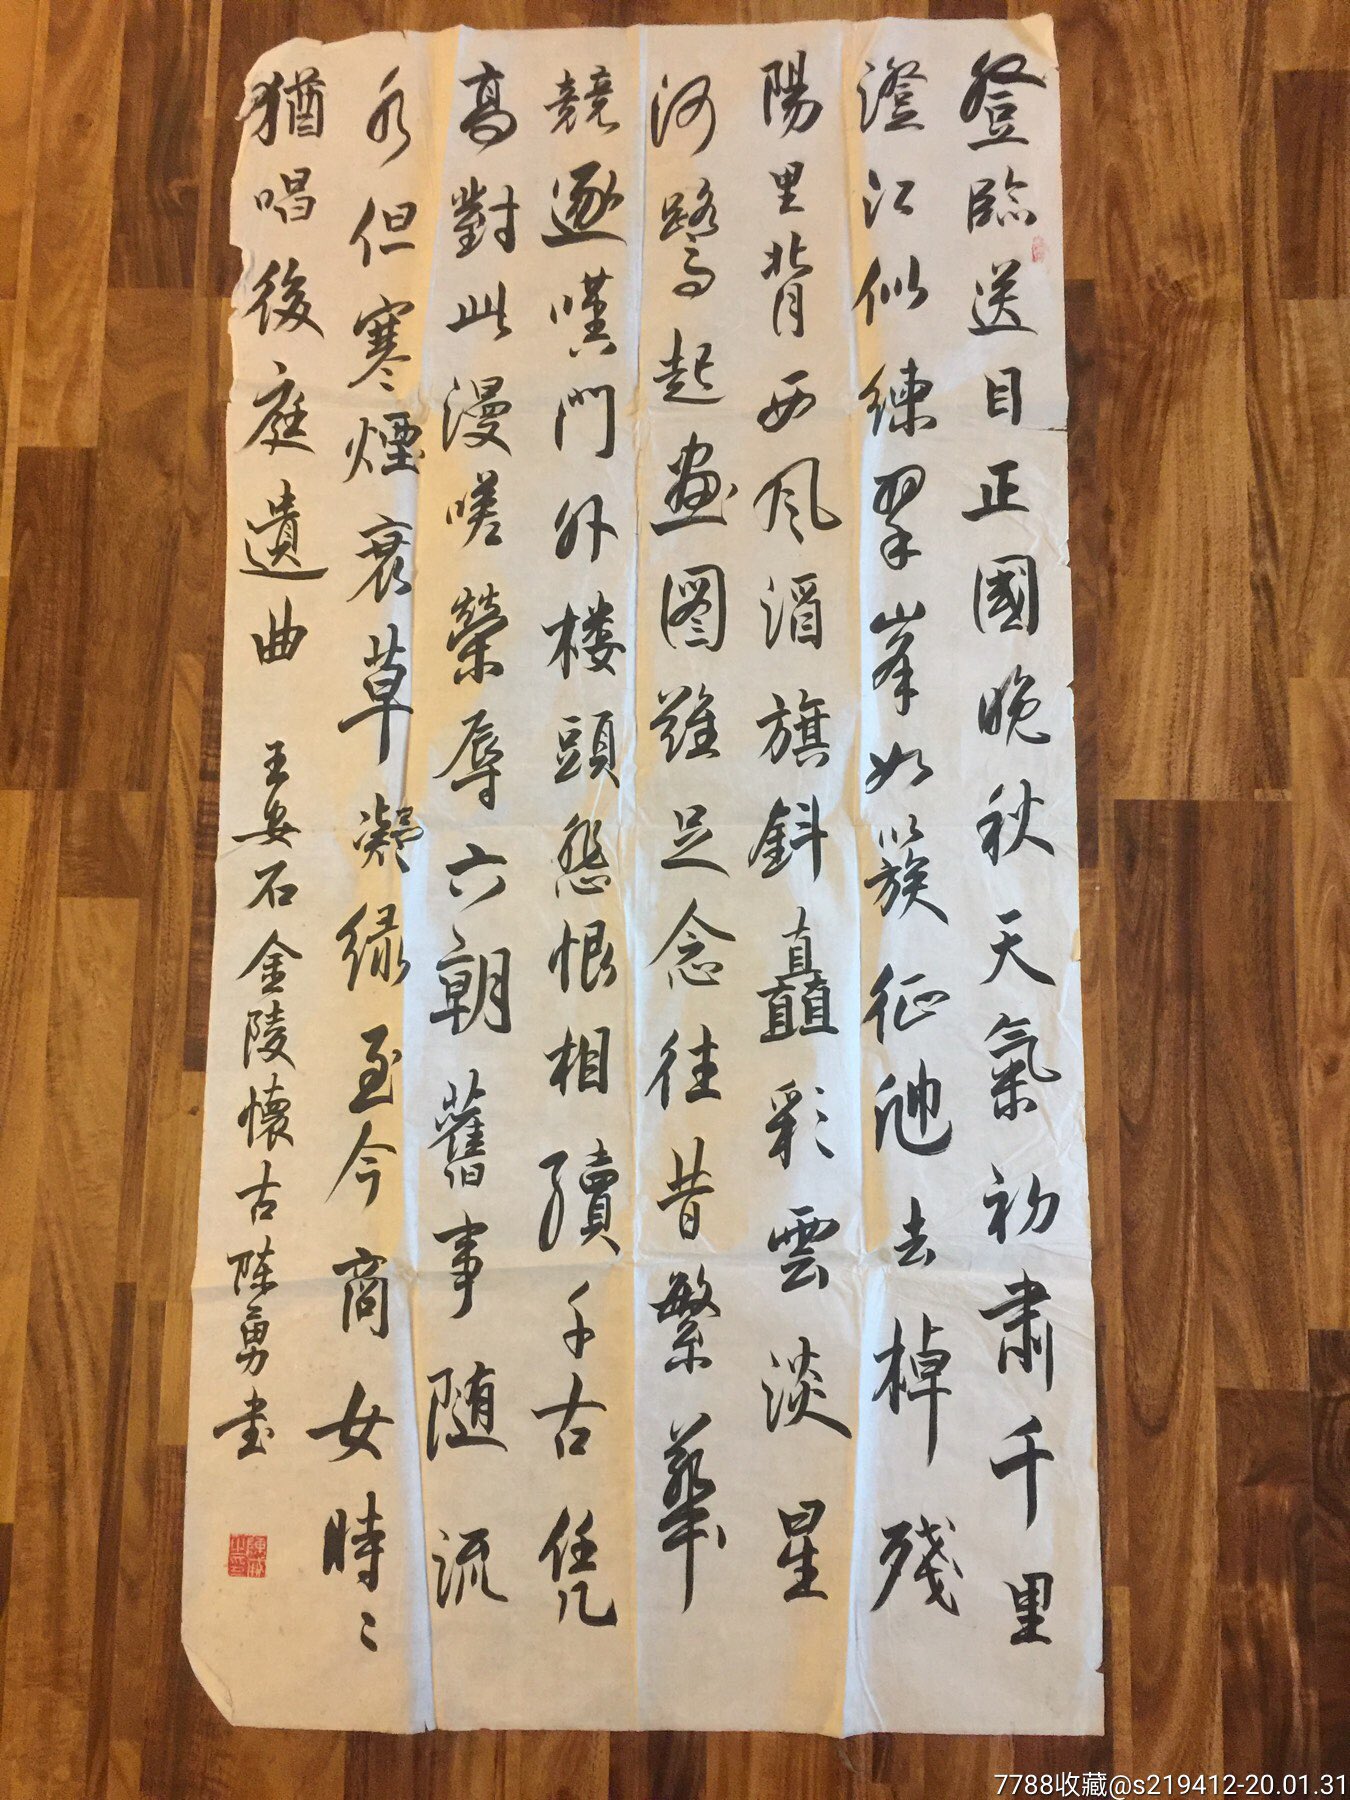 登臨送目正國晚秋天氣初肅千里
澄江似練翠峯如簇征帆去棹殘
陽里背西風酒旗斜矗彩雲淡星
河鷺起画图難足念往昔繁華
競逐嘆門外楼頭悲恨相續千古凭
高對此漫嗟榮辱六朝舊事随流
水但寒煙衰草凝绿至今商女時々
猶唱後庭遺曲 王安石金陵懷古陈勇书
7788收藏@s219412-20.01.31